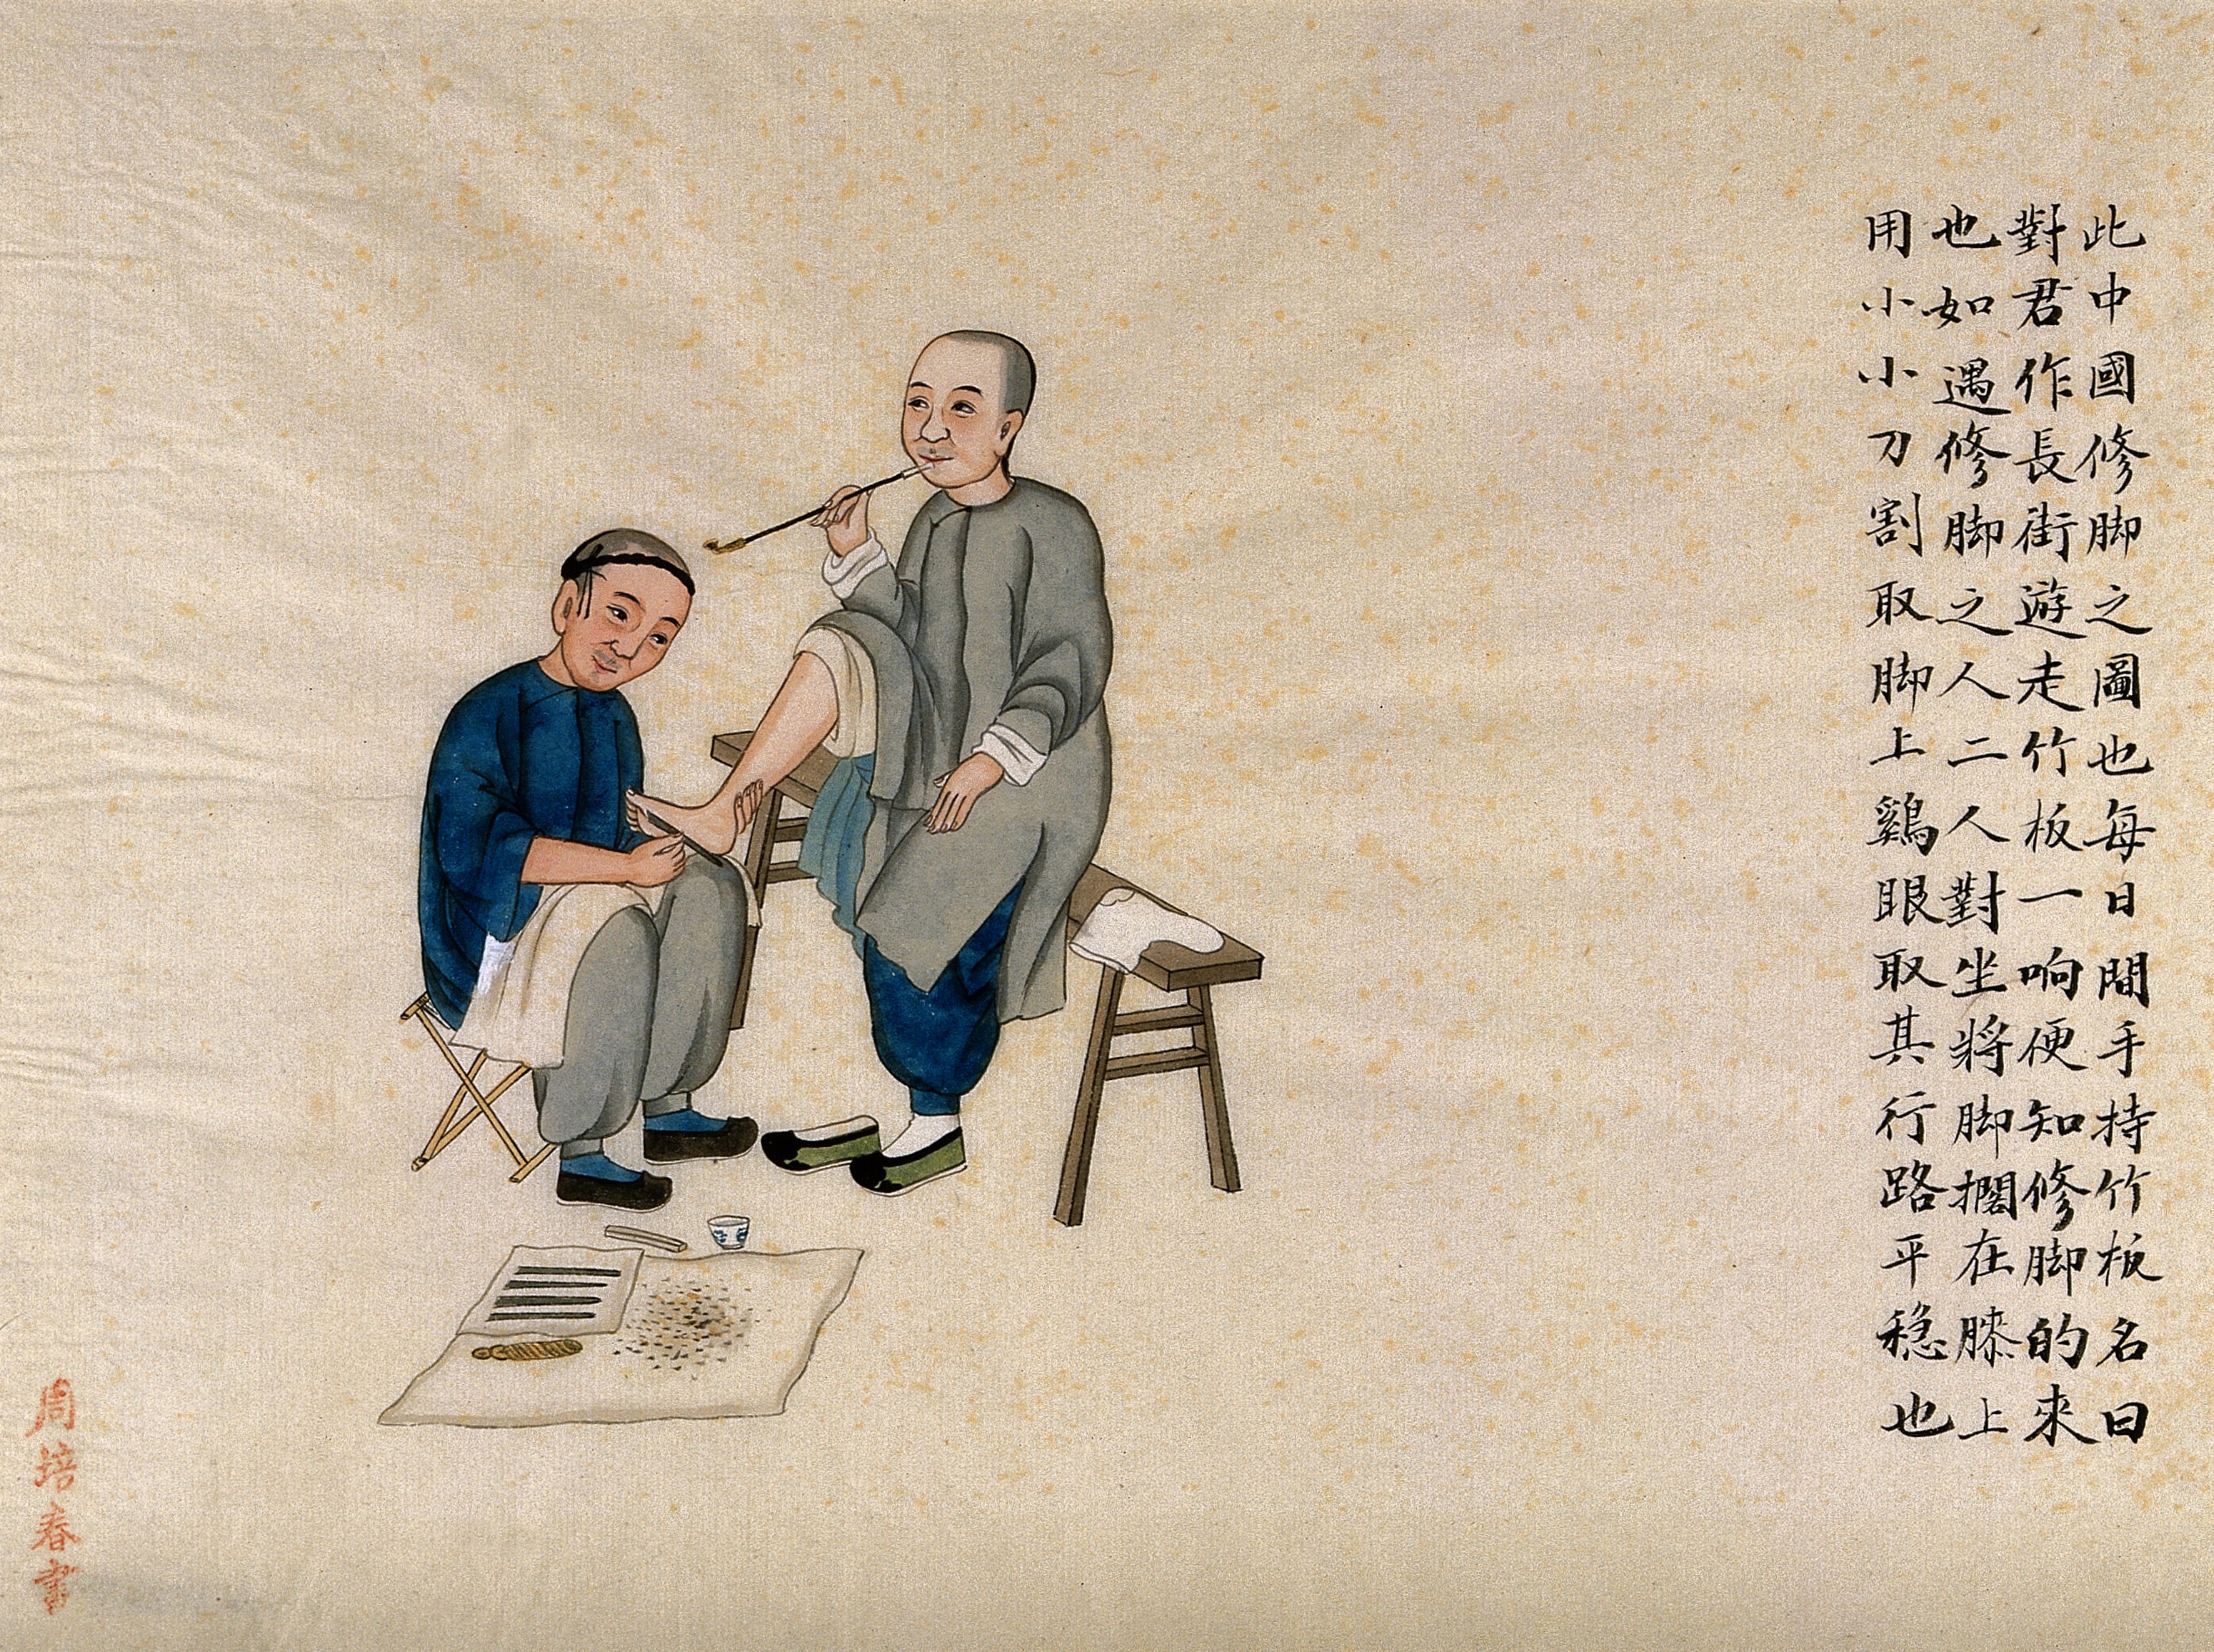 此中國修脚之圖也每日間手持竹板名曰
對君作長街遊走竹板一响便知修脚的來
也如遇修脚之人二人對坐將脚擱在膝上
用小小刀割取脚上鷄眼取其行路平稳也
周培春畫